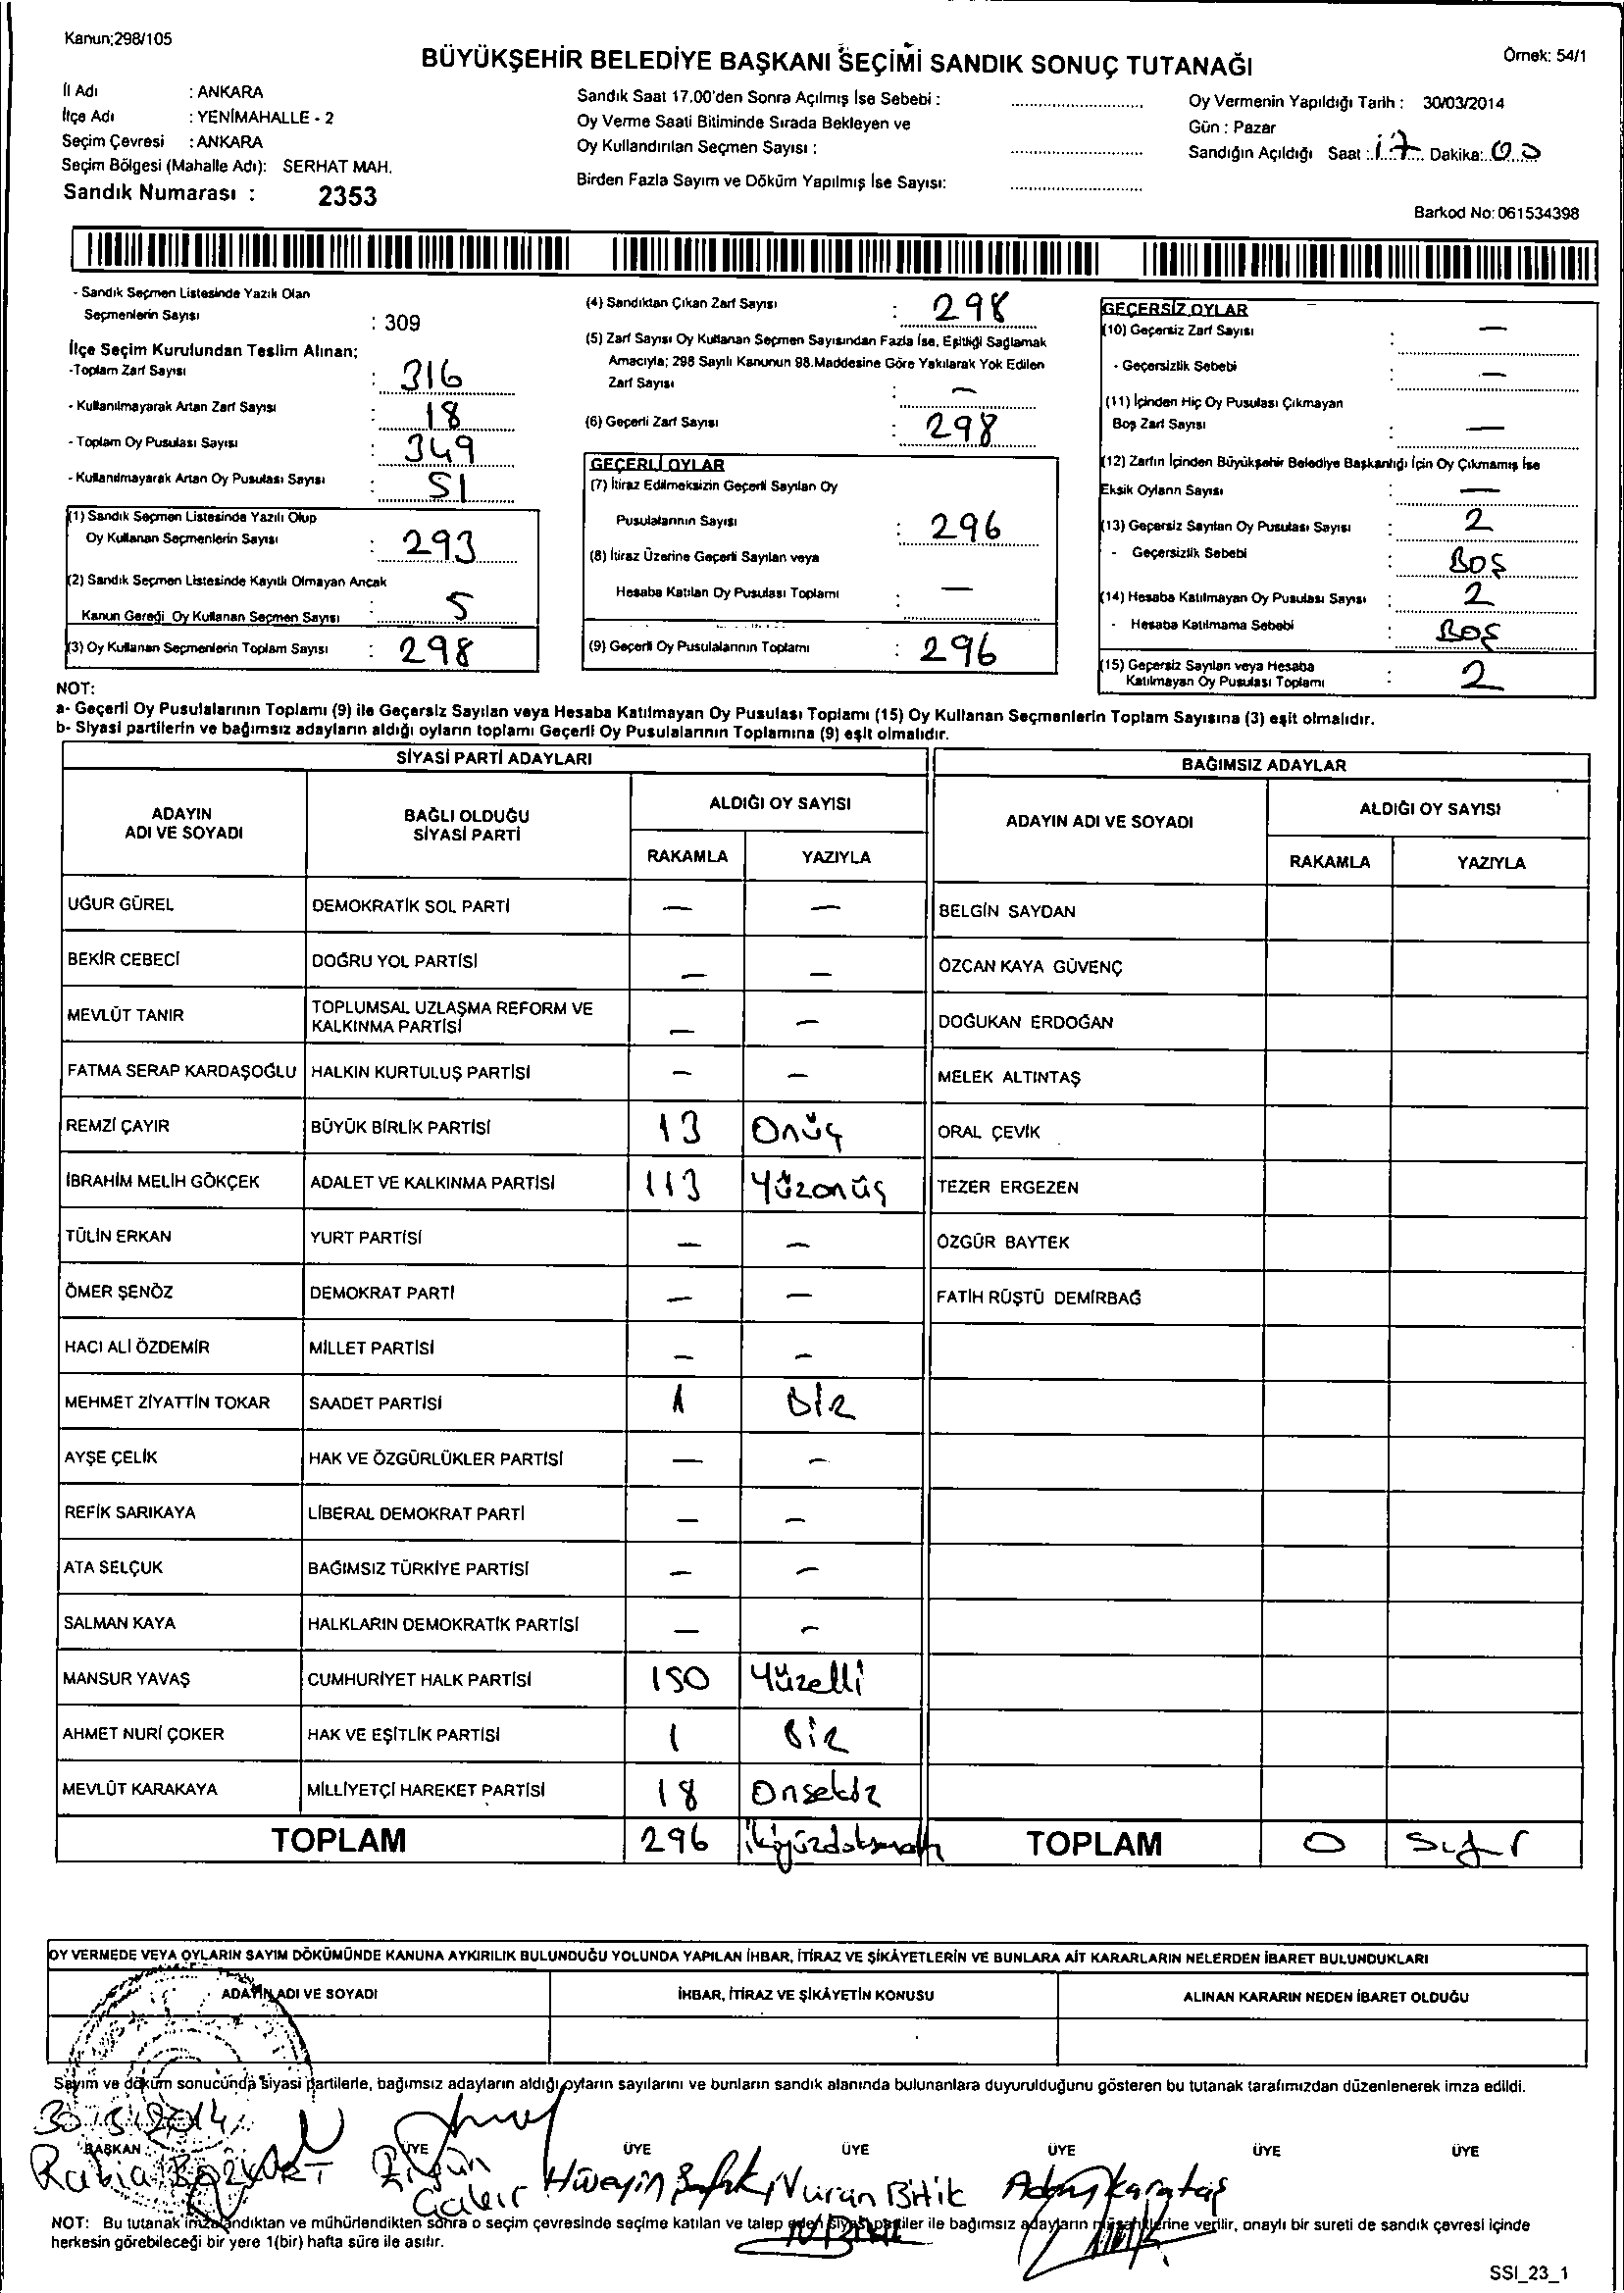 Kanun;298/105
BÜYÜKŞEHİR BELEDİYE BAŞKANI SEÇİMİ SANDIK SONUÇ TUTANAĞI
Örnek: 54/1
İl Adı : ANKARA
İlçe Adı : YENİMAHALLE - 2
Seçim Çevresi : ANKARA
Seçim Bölgesi (Mahalle Adı): SERHAT MAH.
Sandık Numarası : 2353
Sandık Saat 17.00'den Sonra Açılmış İse Sebebi :
Oy Verme Saati Bitiminde Sırada Bekleyen ve
Oy Kullandırılan Seçmen Sayısı :
Birden Fazla Sayım ve Döküm Yapılmış İse Sayısı:
Oy Vermenin Yapıldığı Tarih : 30/03/2014
Gün : Pazar
Sandığın Açıldığı Saat : 17 Dakika: 00
Barkod No: 061534398
- Sandık Seçmen Listesinde Yazılı Olan
Seçmenlerin Sayısı : 309
İlçe Seçim Kurulundan Teslim Alınan;
-Toplam Zarf Sayısı : 316
- Kullanılmayarak Artan Zarf Sayısı : 18
- Toplam Oy Pusulası Sayısı : 349
- Kullanılmayarak Artan Oy Pusulası Sayısı : 51
(1) Sandık Seçmen Listesinde Yazılı Olup
Oy Kullanan Seçmenlerin Sayısı : 293
(2) Sandık Seçmen Listesinde Kayıtlı Olmayan Ancak
Kanun Gereği Oy Kullanan Seçmen Sayısı : 5
(3) Oy Kullanan Seçmenlerin Toplam Sayısı : 298
(4) Sandıktan Çıkan Zarf Sayısı : 298
(5) Zarf Sayısı Oy Kullanan Seçmen Sayısından Fazla İse, Eşitliği Sağlamak
Amacıyla; 298 Sayılı Kanunun 98.Maddesine Göre Yakılarak Yok Edilen
Zarf Sayısı : —
(6) Geçerli Zarf Sayısı : 298
GEÇERLİ OYLAR
(7) İtiraz Edilmeksizin Geçerli Sayılan Oy
Pusulalarının Sayısı : 296
(8) İtiraz Üzerine Geçerli Sayılan veya
Hesaba Katılan Oy Pusulası Toplamı : —
(9) Geçerli Oy Pusulalarının Toplamı : 296
GEÇERSİZ OYLAR
(10) Geçersiz Zarf Sayısı : —
- Geçersizlik Sebebi : —
(11) İçinden Hiç Oy Pusulası Çıkmayan
Boş Zarf Sayısı : —
(12) Zarfın İçinden Büyükşehir Belediye Başkanlığı İçin Oy Çıkmamış İse
Eksik Oyların Sayısı : —
(13) Geçersiz Sayılan Oy Pusulası Sayısı : 2
- Geçersizlik Sebebi : BOŞ
(14) Hesaba Katılmayan Oy Pusulası Sayısı : 2
- Hesaba Katılmama Sebebi : BOŞ
(15) Geçersiz Sayılan veya Hesaba
Katılmayan Oy Pusulası Toplamı : 2
NOT:
a- Geçerli Oy Pusulalarının Toplamı (9) ile Geçersiz Sayılan veya Hesaba Katılmayan Oy Pusulası Toplamı (15) Oy Kullanan Seçmenlerin Toplam Sayısına (3) eşit olmalıdır.
b- Siyasi partilerin ve bağımsız adayların aldığı oyların toplamı Geçerli Oy Pusulalarının Toplamına (9) eşit olmalıdır.
SİYASİ PARTİ ADAYLARI BAĞIMSIZ ADAYLAR
ADAYIN ADI VE SOYADI BAĞLI OLDUĞU SİYASİ PARTİ ALDIĞI OY SAYISI ADAYIN ADI VE SOYADI ALDIĞI OY SAYISI
RAKAMLA YAZIYLA RAKAMLA YAZIYLA
UĞUR GÜREL DEMOKRATİK SOL PARTİ — — BELGİN SAYDAN
BEKİR CEBECİ DOĞRU YOL PARTİSİ — — ÖZCAN KAYA GÜVENÇ
MEVLÜT TANIR TOPLUMSAL UZLAŞMA REFORM VE KALKINMA PARTİSİ — — DOĞUKAN ERDOĞAN
FATMA SERAP KARDAŞOĞLU HALKIN KURTULUŞ PARTİSİ — — MELEK ALTINTAŞ
REMZİ ÇAYIR BÜYÜK BİRLİK PARTİSİ 13 Onüç ORAL ÇEVİK
İBRAHİM MELİH GÖKÇEK ADALET VE KALKINMA PARTİSİ 113 Yüzonüç TEZER ERGEZEN
TÜLİN ERKAN YURT PARTİSİ — — ÖZGÜR BAYTEK
ÖMER ŞENÖZ DEMOKRAT PARTİ — — FATİH RÜŞTÜ DEMİRBAĞ
HACI ALİ ÖZDEMİR MİLLET PARTİSİ — —
MEHMET ZİYATTİN TOKAR SAADET PARTİSİ 1 BİR
AYŞE ÇELİK HAK VE ÖZGÜRLÜKLER PARTİSİ — —
REFİK SARIKAYA LİBERAL DEMOKRAT PARTİ — —
ATA SELÇUK BAĞIMSIZ TÜRKİYE PARTİSİ — —
SALMAN KAYA HALKLARIN DEMOKRATİK PARTİSİ — —
MANSUR YAVAŞ CUMHURİYET HALK PARTİSİ 150 Yüzelli
AHMET NURİ ÇOKER HAK VE EŞİTLİK PARTİSİ 1 BİR
MEVLÜT KARAKAYA MİLLİYETÇİ HAREKET PARTİSİ 18 Onsekiz
TOPLAM 296 ikiyüzdoksanaltı TOPLAM 0 Sıfır
OY VERMEDE VEYA OYLARIN SAYIM DÖKÜMÜNDE KANUNA AYKIRILIK BULUNDUĞU YOLUNDA YAPILAN İHBAR, İTİRAZ VE ŞİKÂYETLERİN VE BUNLARA AİT KARARLARIN NELERDEN İBARET BULUNDUKLARI
ADAYIN ADI VE SOYADI İHBAR, İTİRAZ VE ŞİKÂYETİN KONUSU ALINAN KARARIN NEDEN İBARET OLDUĞU
Sayım ve döküm sonucunda siyasi partilerle, bağımsız adayların aldığı oyların sayılarını ve bunların sandık alanında bulunanlara duyurulduğunu gösteren bu tutanak tarafımızdan düzenlenerek imza edildi.
30/3/2014
BAŞKAN ÜYE ÜYE ÜYE ÜYE ÜYE ÜYE
Rabia BOZKURT Hüseyin Nuran Bitik Adem Karataş
NOT: Bu tutanak imzalandıktan ve mühürlendikten sonra o seçim çevresinde seçime katılan ve talep eden siyasi partiler ile bağımsız adayların müşahitlerine verilir, onaylı bir sureti de sandık çevresi içinde
herkesin görebileceği bir yere 1(bir) hafta süre ile asılır.
SSI_23_1